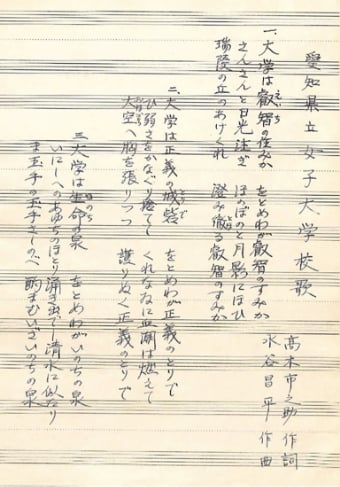 愛知県立女子大学校歌
高木市之助 作詞
水谷昌平 作曲
一、大学は叡智の住みか をとめわが叡智のすみか
さんさんと日光注ぎ ほのぼのと月影にほひ
瑞陵の丘のあけくれ 澄み徹る叡智のすみか
二、大学は正義の城砦 をとめわが正義のとりで
ひ弱さをかなぐり捨てし くれなゐに血潮は燃えて
大空へ胸を張りつつ 護りぬく正義のとりで
三、大学は生命の泉 をとめわがいのちの泉
いにしへのあゆちのほとり 涌き出でし清水に似たり
ま玉手の玉手さしのべ 酌まむいざいのちの泉